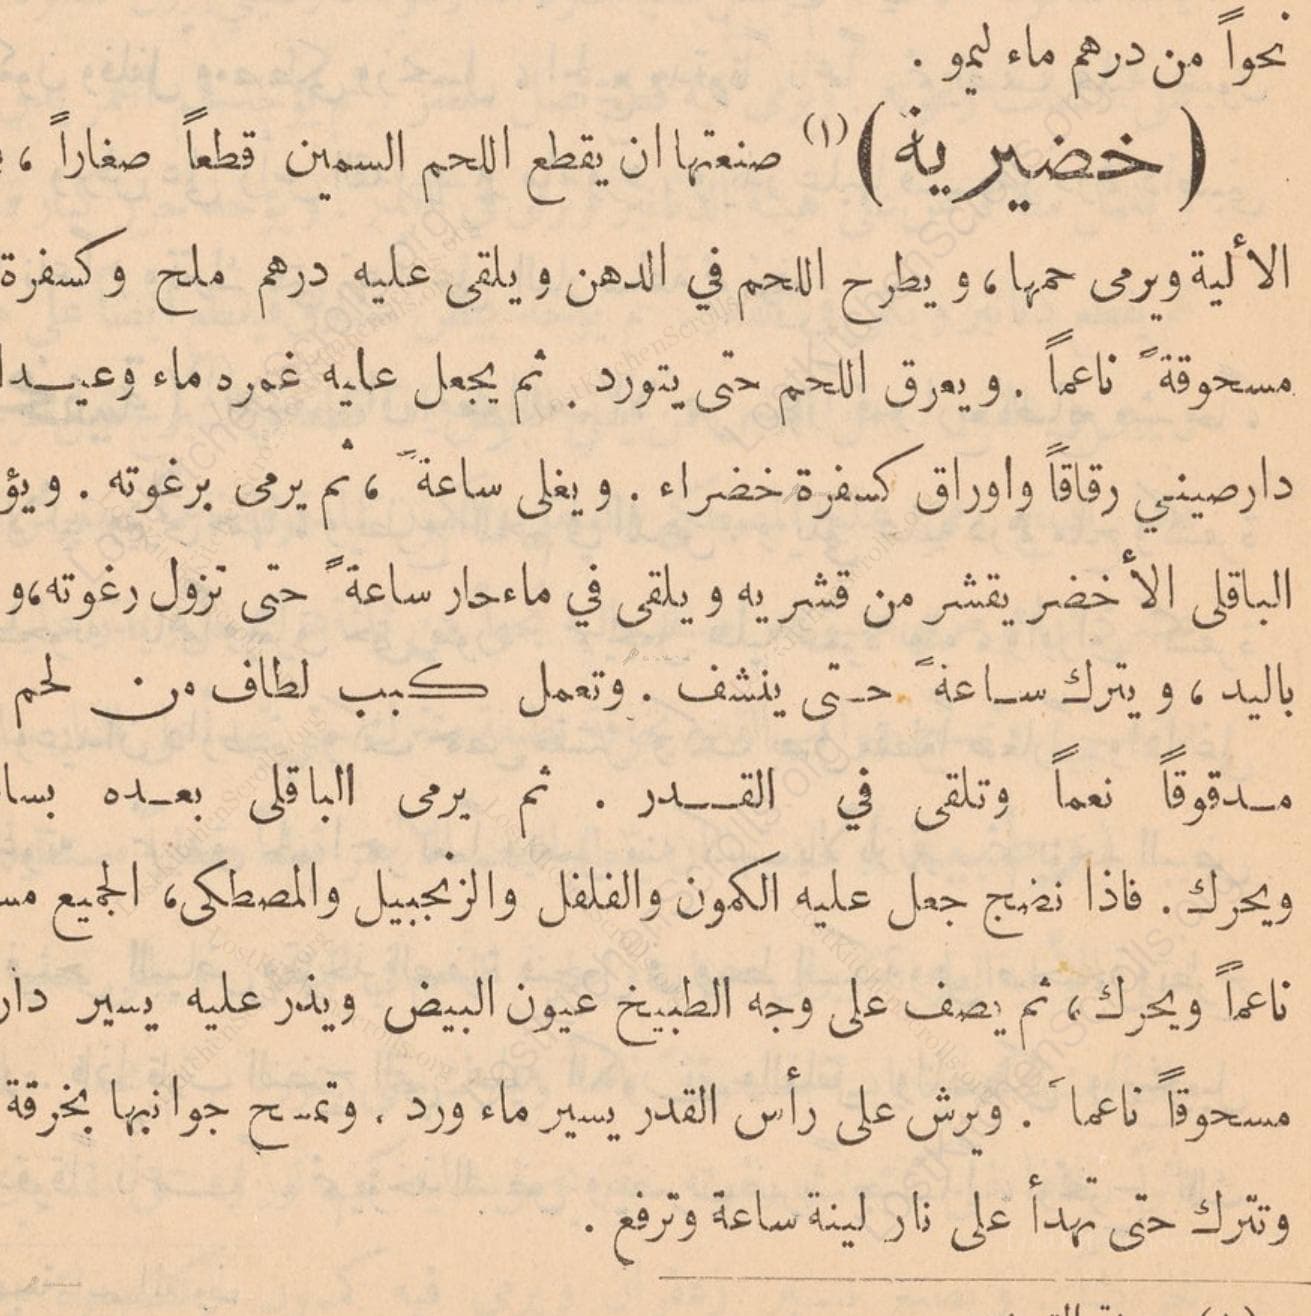 نحواً من درهم ماء ليمو .
(خضيرية) (١) صنعتها ان يقطع اللحم السمين قطعاً صغاراً ،
الألية ويرمى حمها ، ويطرح اللحم في الدهن ويلقى عليه درهم ملح وكسفرة
مسحوقةً ناعماً . ويعرق اللحم حتى يتورد . ثم يجعل عليه غمره ماء وعيدا
دارصيني رقاقاً واوراق كسفرة خضراء . ويغلى ساعةً ، ثم يرمى برغوته . ويؤ
الباقلى الأخضر يقشر من قشريه ويلقى في ماء حار ساعةً حتى تزول رغوته ، و
باليد ، ويترك ساعةً حتى ينشف . وتعمل كبب لطاف من لحم
مدقوقاً نعماً وتلقى في القدر . ثم يرمى الباقلى بعده بسا
ويحرك . فاذا نضج جعل عليه الكمون والفلفل والزنجبيل والمصطكى ، الجميع مس
ناعماً ويحرك ، ثم يصف على وجه الطبيخ عيون البيض ويذر عليه يسير دار
مسحوقاً ناعماً . ويرش على رأس القدر يسير ماء ورد . وتمسح جوانبها بخرقة
وتترك حتى تهدأ على نار لينة ساعة وترفع .